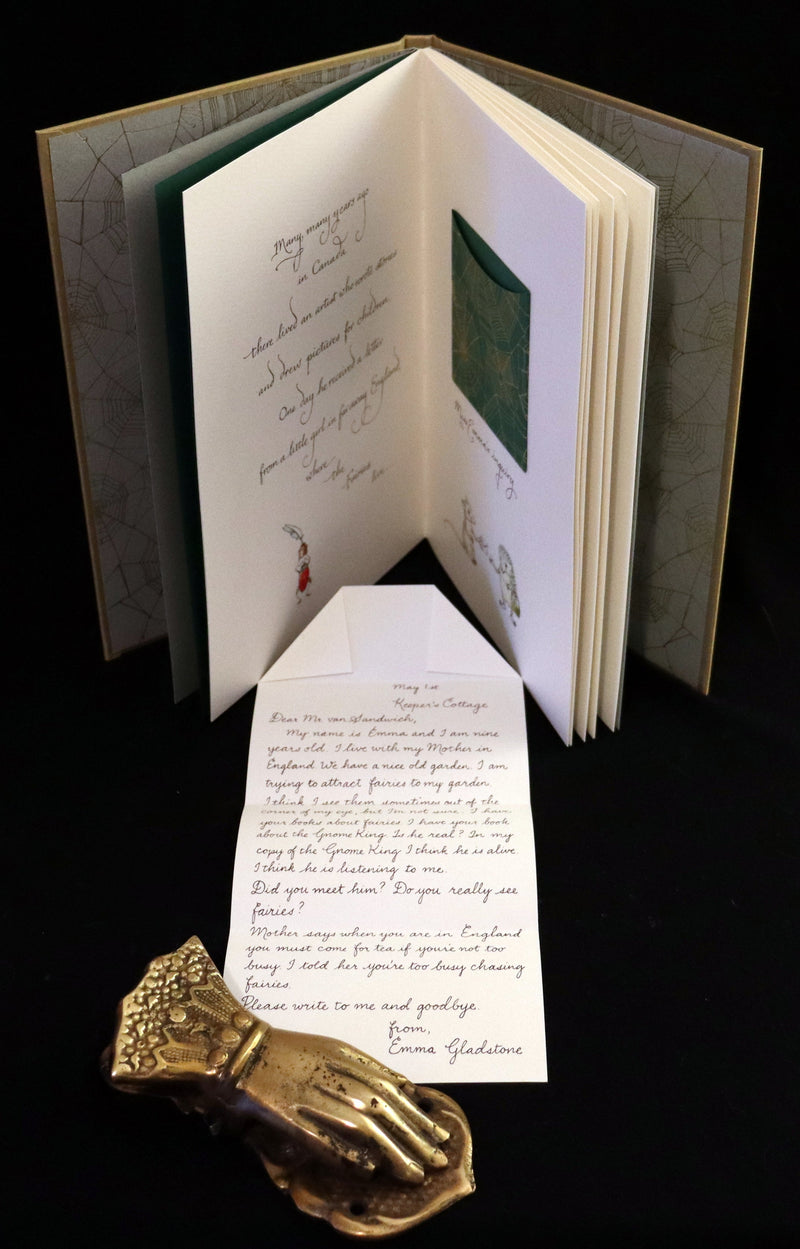 Many, many years ago
in Canada
there lived an artist who wrote stories
and drew pictures for children.
One day he received a letter
from a little girl in far away England,
where the Fairies live.
Miss Emma's inquiry
May 1st
Keeper's Cottage
Dear Mr. van Sandwich,
My name is Emma and I am nine
years old. I live with my Mother in
England. We have a nice old garden. I am
trying to attract fairies to my garden.
I think I see them sometimes out of the
corner of my eye, but I'm not sure. I have
your books about fairies. I have your book
about the Gnome King. Is he real? In my
copy of the Gnome King I think he is alive.
I think he is listening to me.
Did you meet him? Do you really see
fairies?
Mother says when you are in England
you must come for tea if you're not too
busy. I told her you're too busy chasing
fairies.
Please write to me and goodbye.
from,
Emma Gladstone